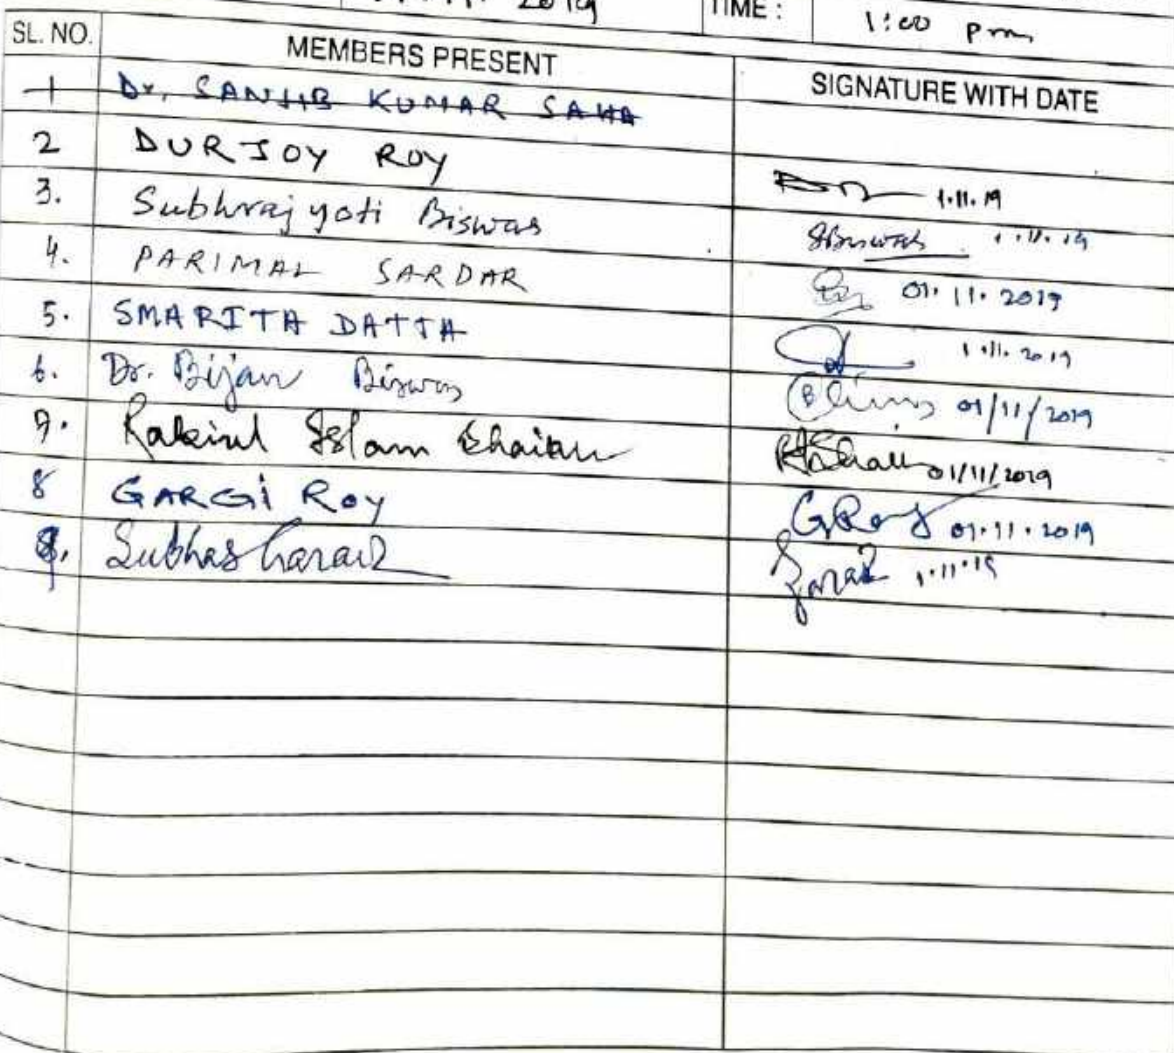 2019 TIME : 1:00 pm
SL. NO. MEMBERS PRESENT SIGNATURE WITH DATE
1 Dr. SANJIB KUMAR SAHA
2 DURJOY ROY 1.11.19
3. Subhrajyoti Biswas SBiswas 1.11.19
4. PARIMAL SARDAR 01.11.2019
5. SMARITA DATTA 1.11.2019
6. Dr. Bijan Biswas 01/11/2019
7. Rakibul Islam Shaikh 01/11/2019
8 GARGi Roy GRoy 01.11.2019
9. Subhas 1.11.19